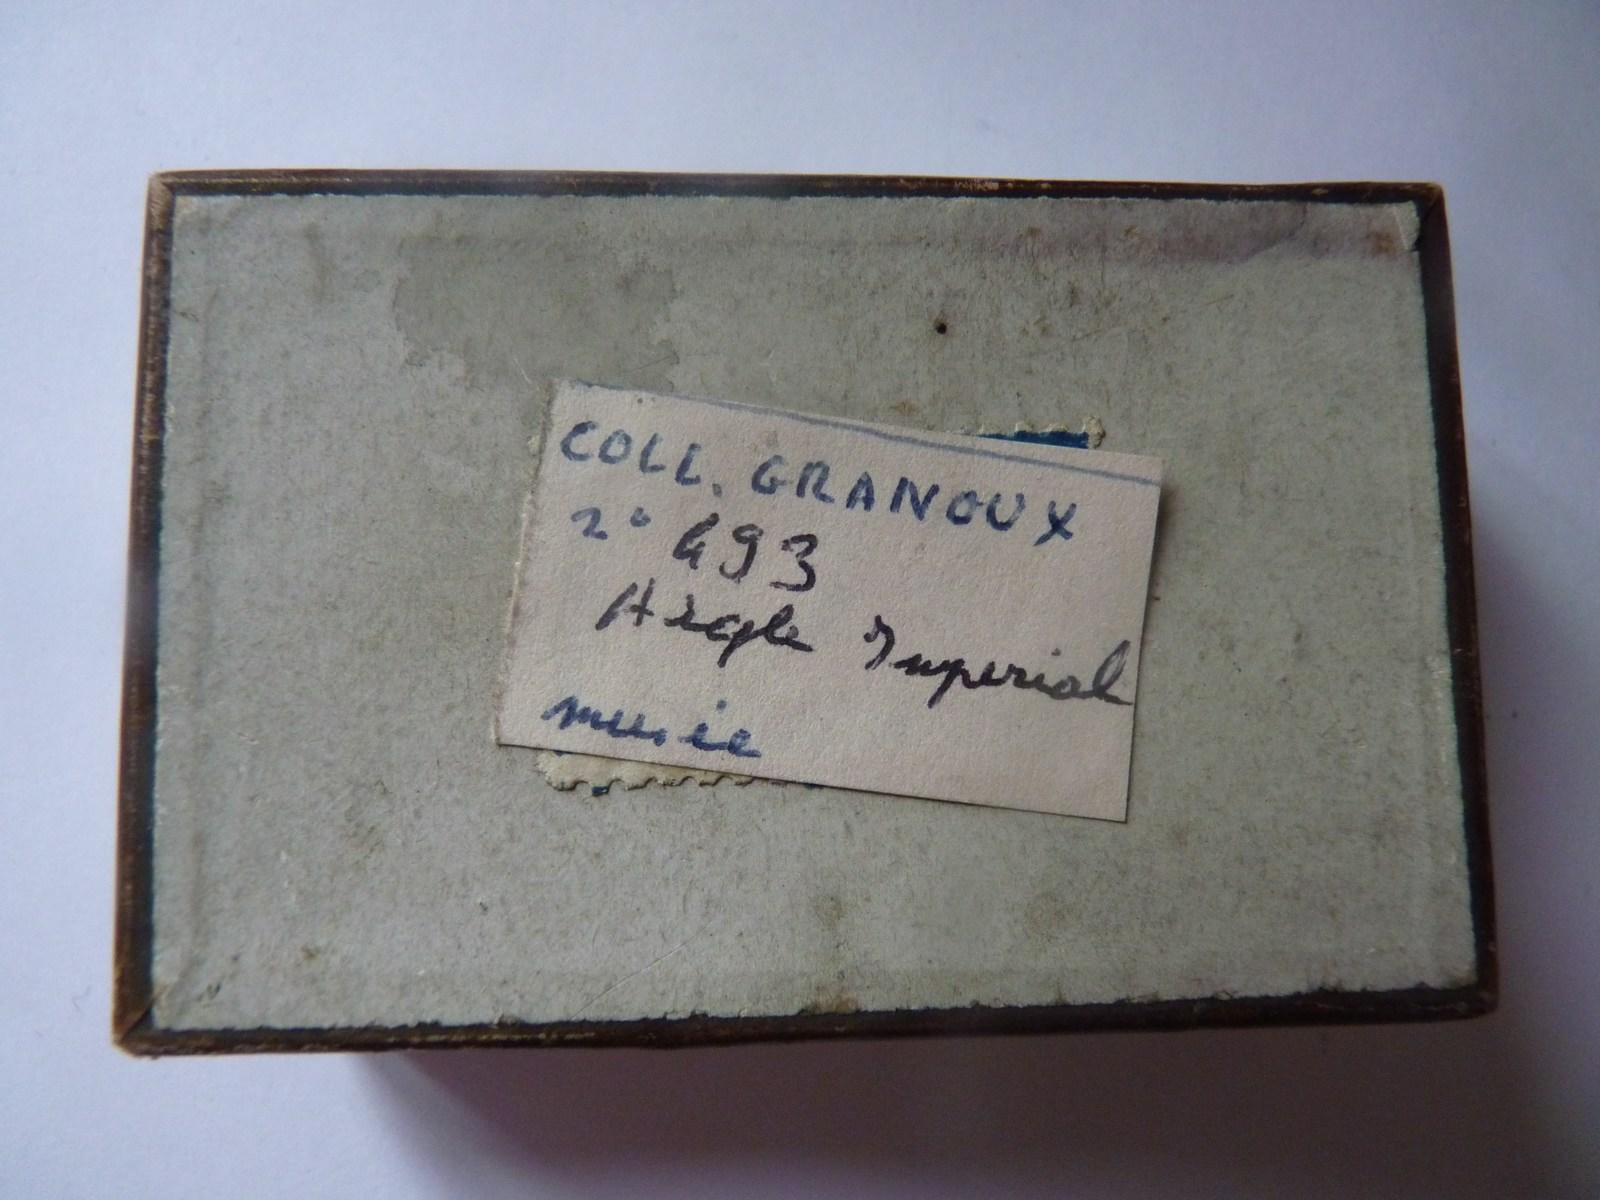 COLL. GRANOUX
2° 493
Aigle Imperial
musée